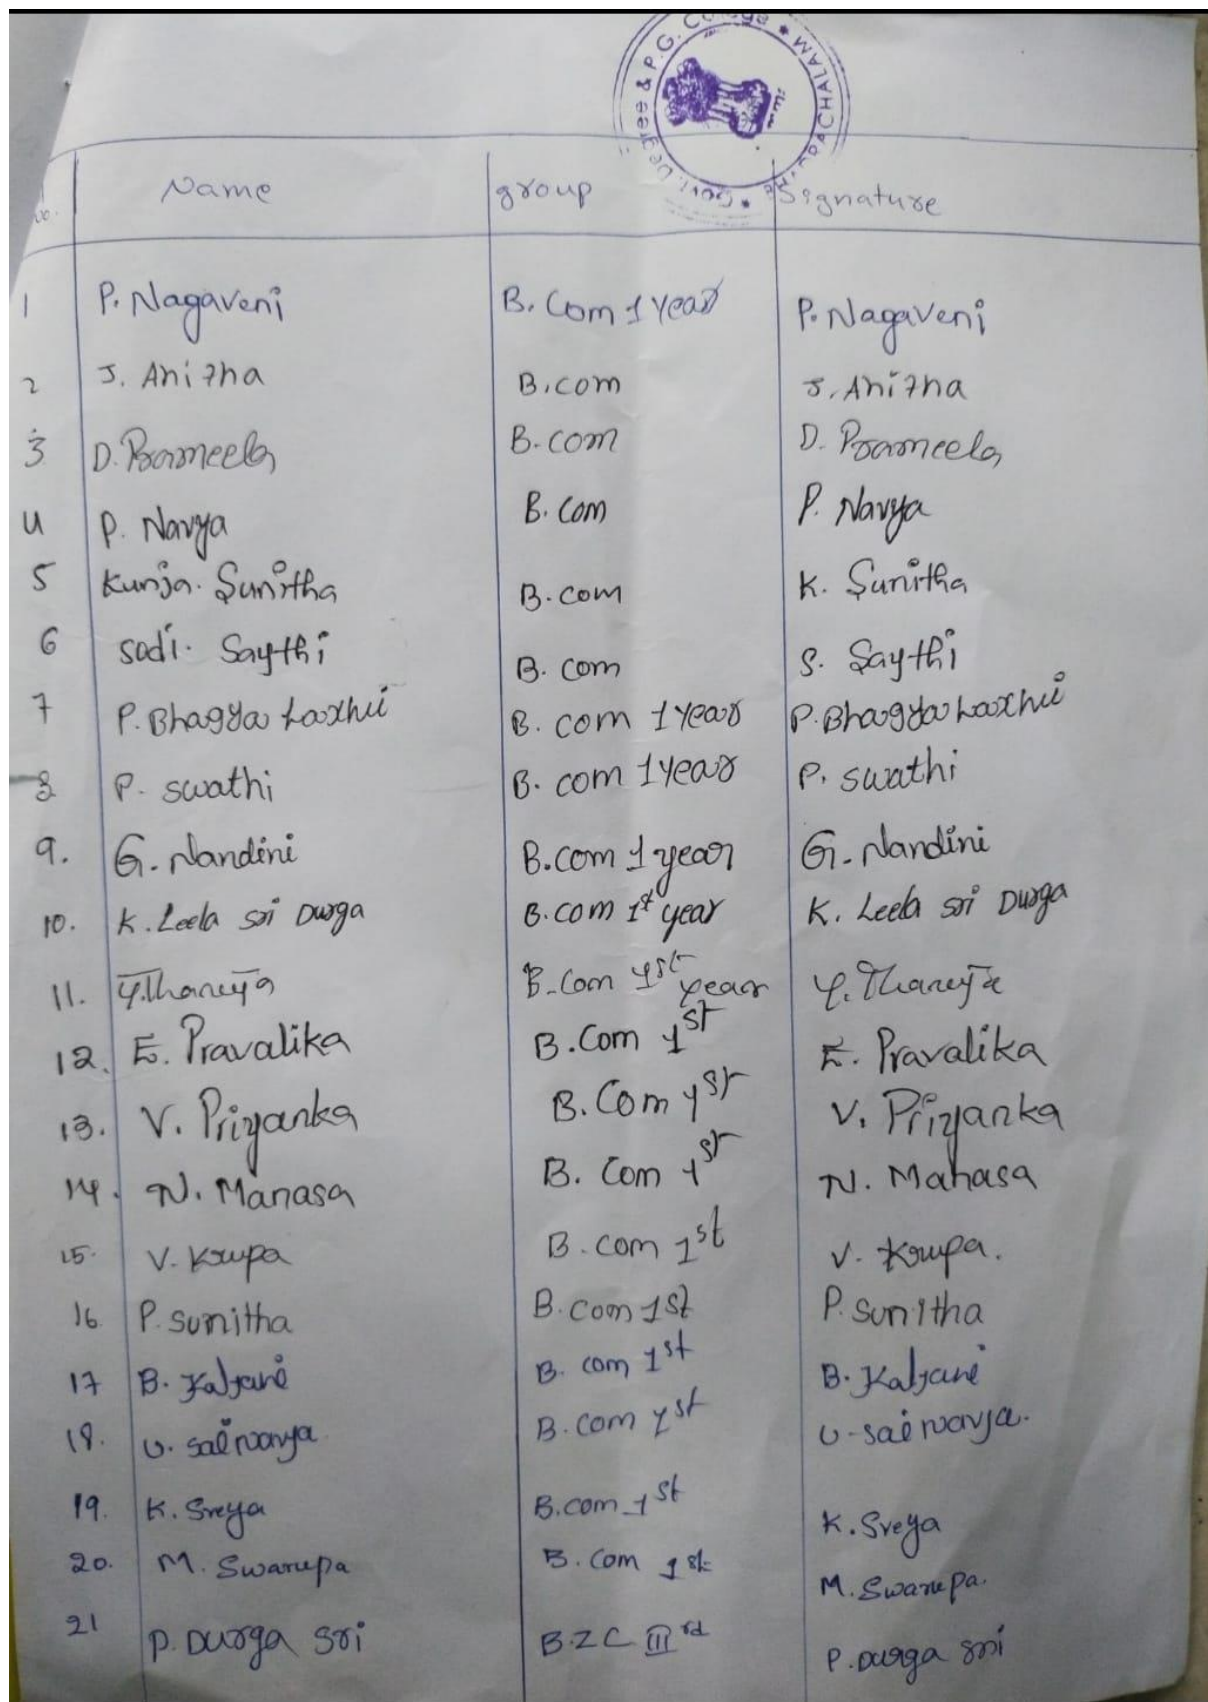 Govt. Degree & P.G. College * BHADRACHALAM *
No. Name group Signature
1 P. Nagaveni B. Com 1 year P. Nagaveni
2 J. Anitha B.com J. Anitha
3 D. Prameela B.com D. Prameela
4 P. Navya B. Com P. Navya
5 Kunja. Sunitha B.com K. Sunitha
6 Sodi. Saythi B. com S. Saythi
7 P. Bhagya Laxhmi B. com 1 year P. Bhagya Laxhmi
8 P. swathi B. com 1 year P. swathi
9. G. Nandini B.com 1 year G. Nandini
10. K. Leela sri Durga B.com 1st year K. Leela sri Durga
11. Y. B.Com 1st year Y.
12. E. Pravalika B.Com 1st E. Pravalika
13. V. Priyanka B. Com 1st V. Priyanka
14. N. Manasa B. Com 1st N. Manasa
15. V. Krupa B.com 1st V. Krupa.
16 P. Sunitha B.com 1st P. Sunitha
17 B. Kalyani B. com 1st B. Kalyani
18. U. sai navya B.com 1st U. sai navya.
19. K. Sreya B.com 1st K. Sreya
20. M. Swarupa B. Com 1st M. Swarupa.
21 P. Durga Sri B.Z C III rd P. Durga Sri